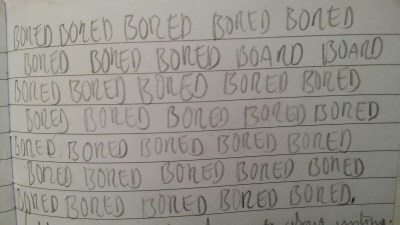 BORED BORED BORED BORED BORED
BORED BORED BORED BOARD BOARD
BORED BORED BORED BORED BORED
BORED BORED BORED BORED BORED
BORED. BORED BORED BORED BORED
BORED BORED BORED BORED BORED
BORED BORED BORED BORED BORED.
about writing.